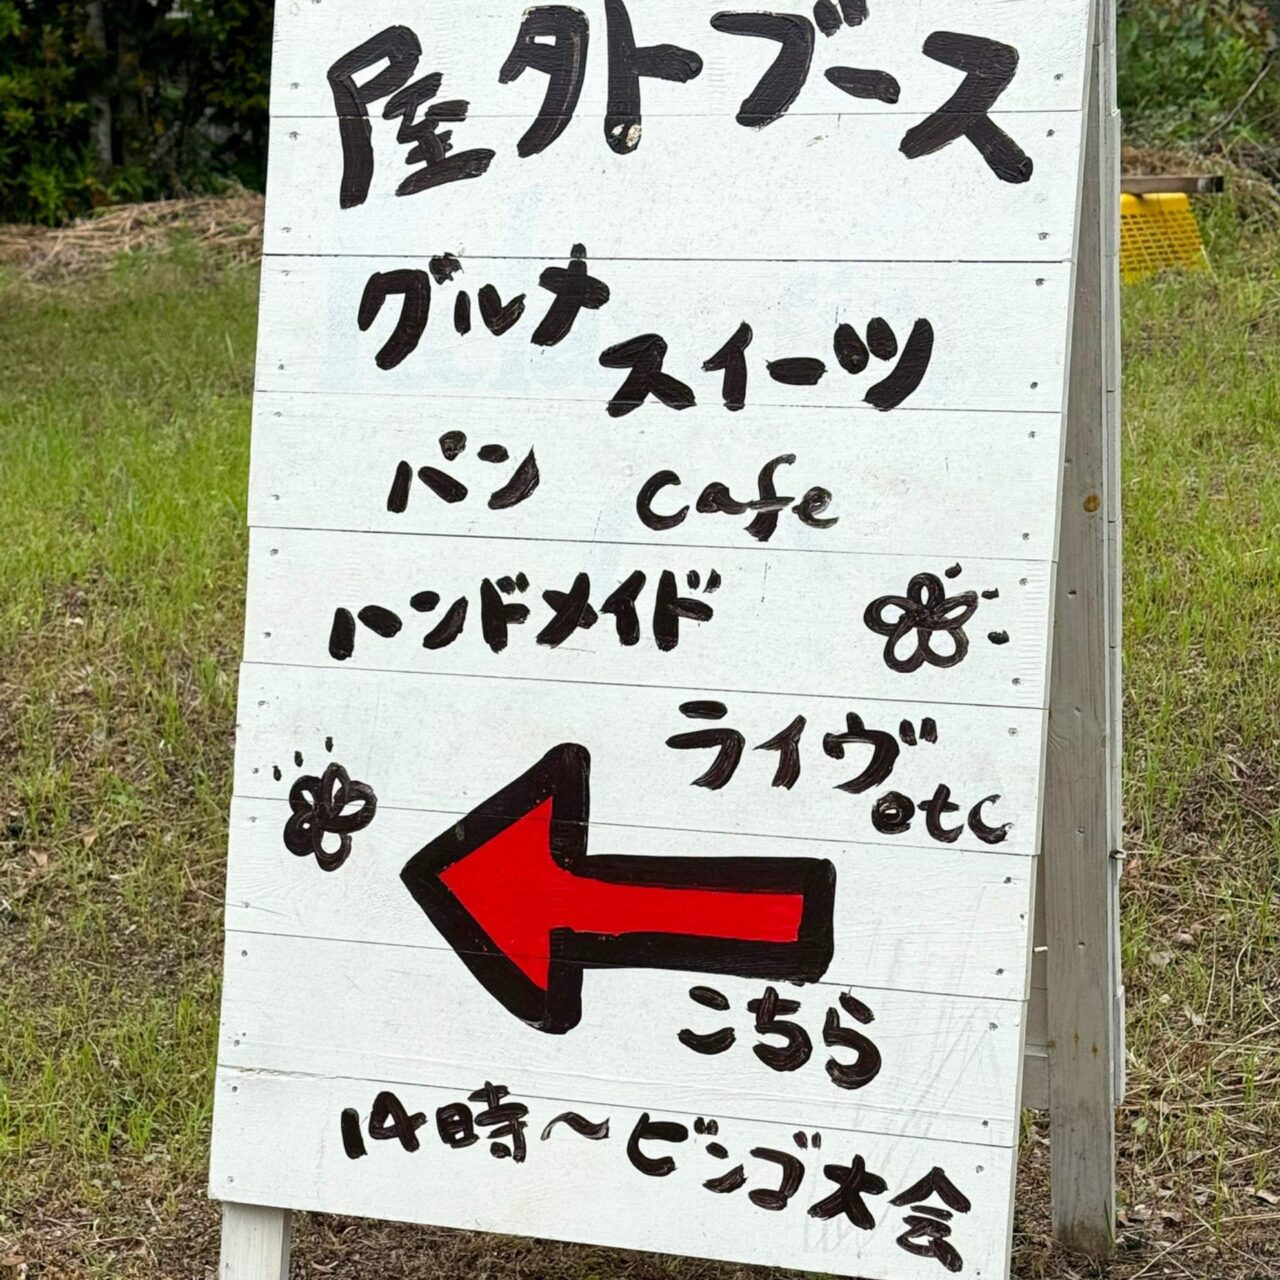 屋外ブース
グルナ
スイーツ
パン cafe
ハンドメイド
ライヴ
etc
こちら
14時〜ビンゴ大会